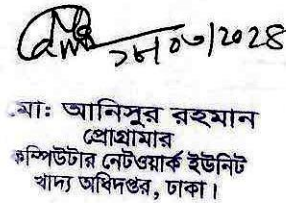 ২৮/০৩/২০২৪
মো: আনিসুর রহমান
প্রোগ্রামার
কম্পিউটার নেটওয়ার্ক ইউনিট
খাদ্য অধিদপ্তর, ঢাকা।